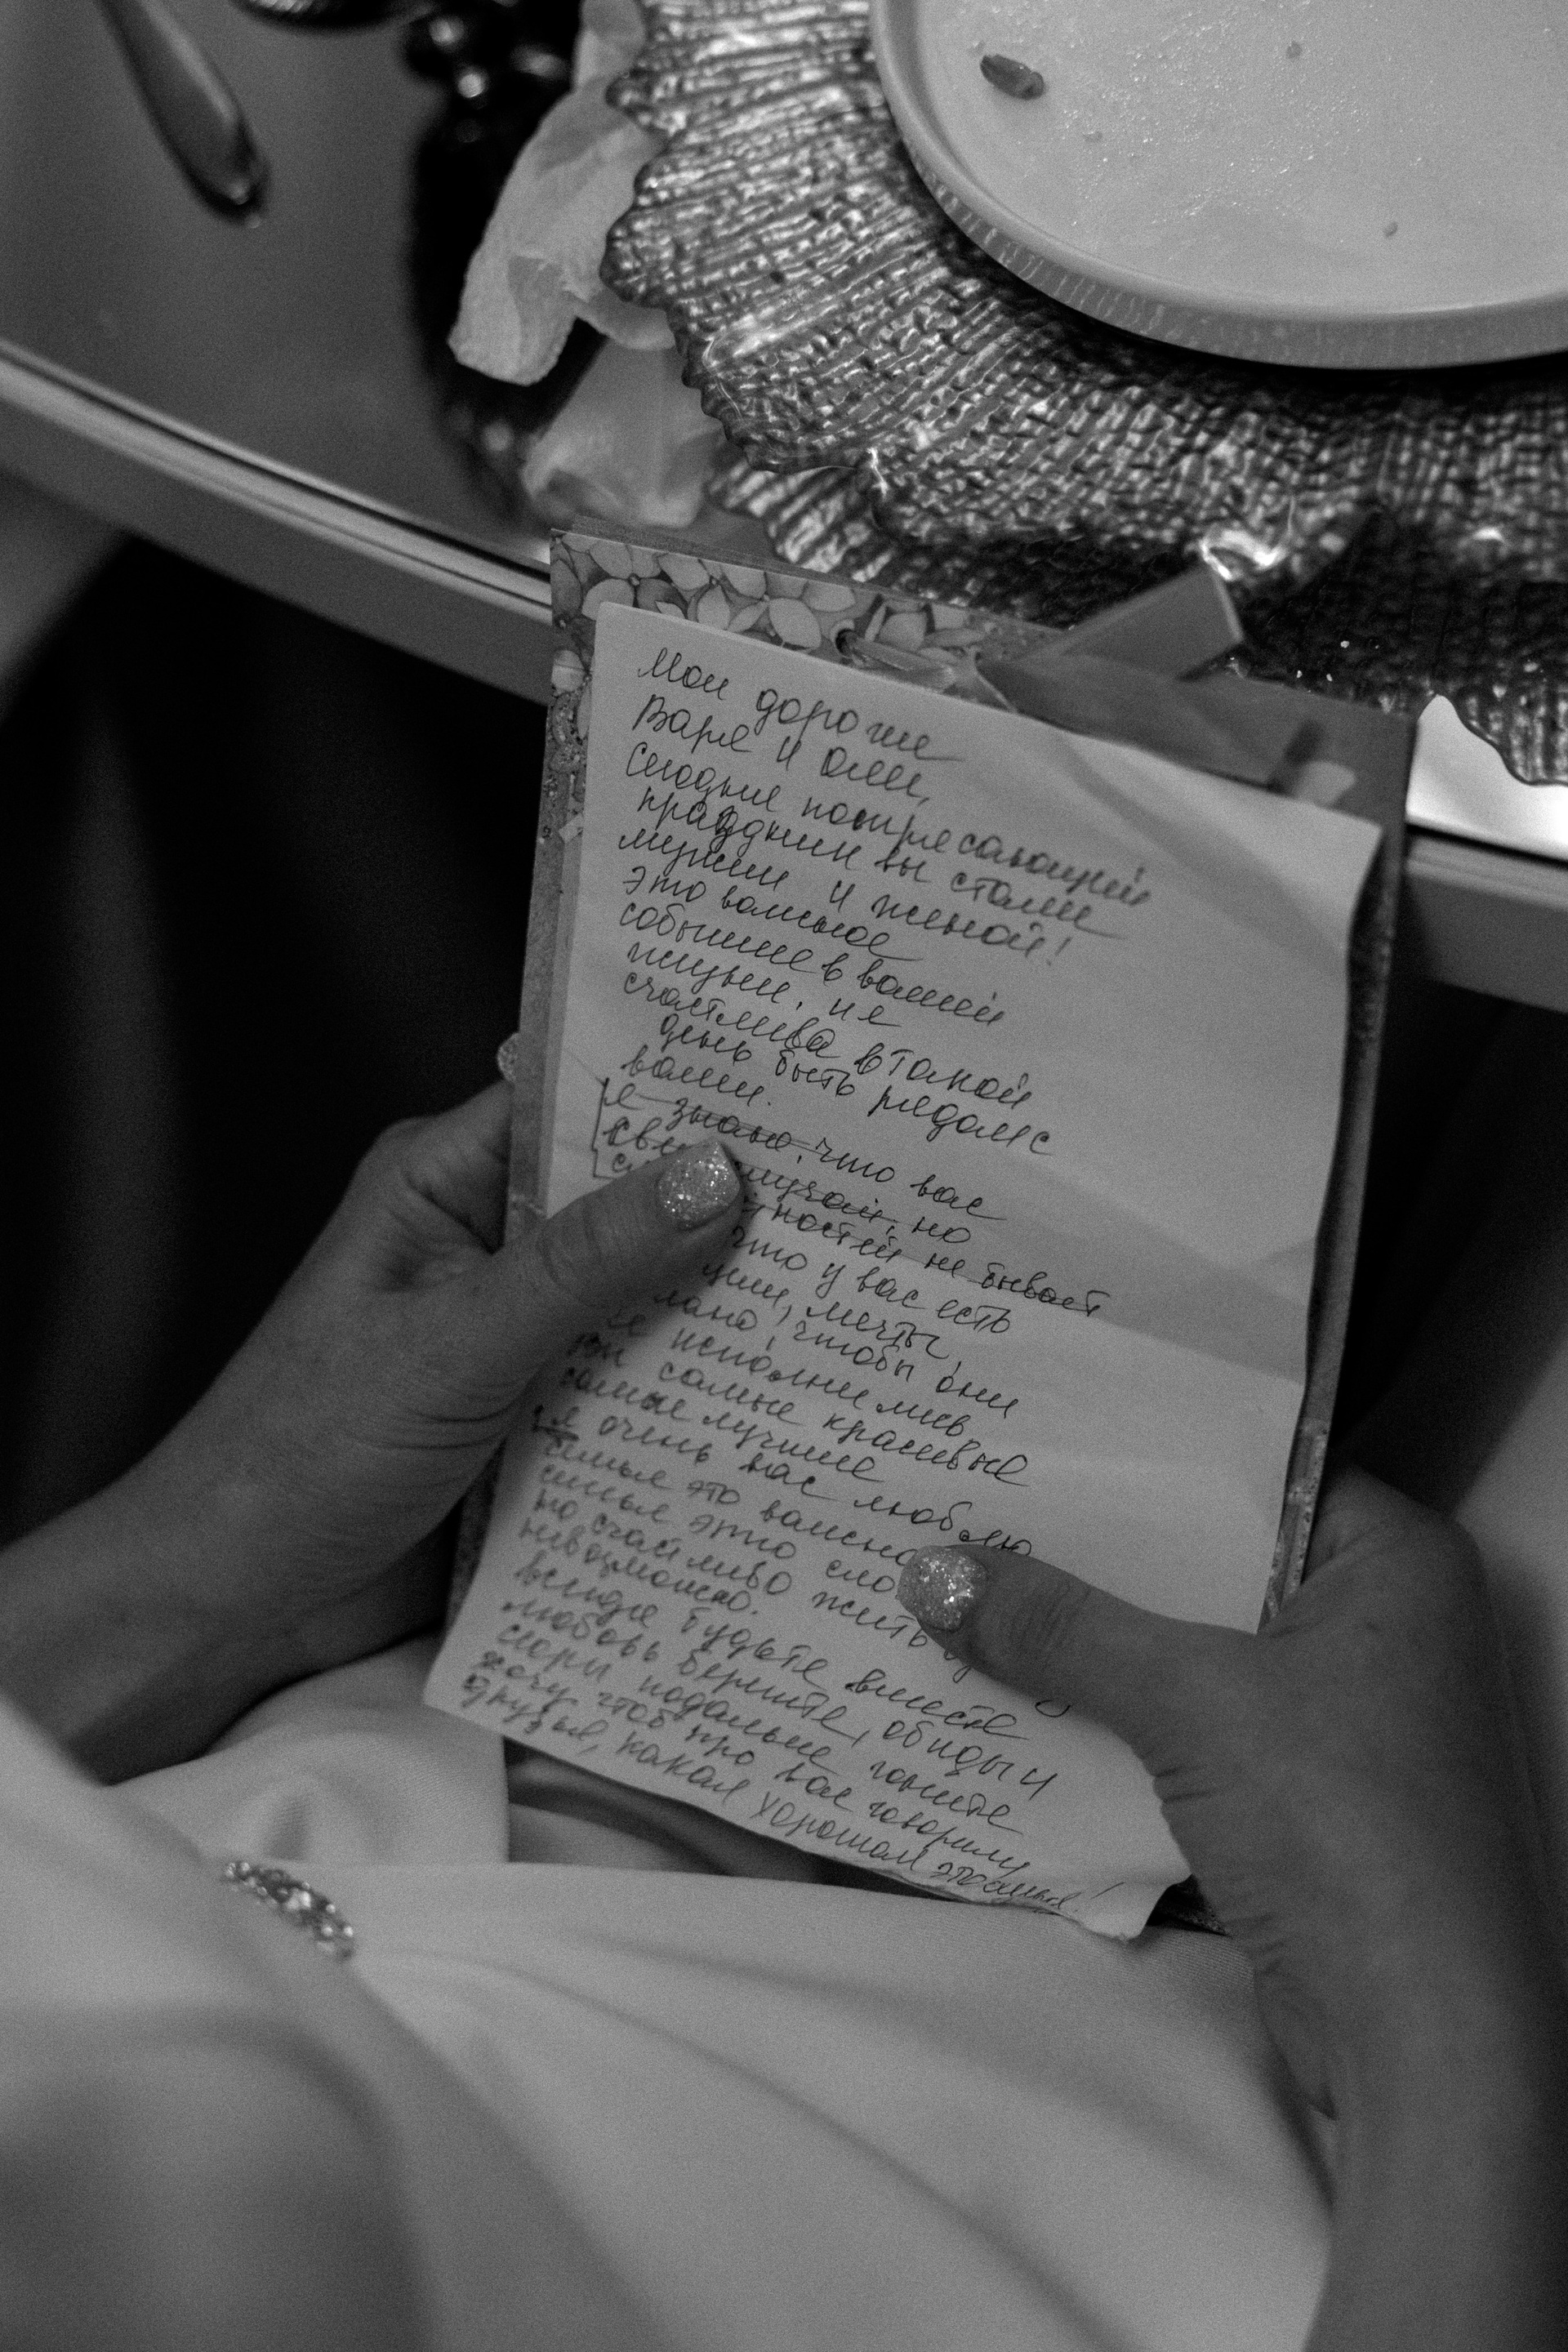 Мои дорогие
Варя и Олег,
сегодня потрясающий
праздник вы стали
мужем и женой!
это важное
событие в вашей
жизни. и я
счастлива в такой
день быть рядом с
вами.
я знаю, что вас
случай, но
не бывает
что у вас есть
мечты,
чтобы они
исполнились
самые красивые
самые лучшие
я очень вас люблю
семья это важно
семья это
но счастливо жить
невозможно.
везде будьте вместе
любовь берегите, обиды и
ссоры подальше гоните
хочу чтоб про вас говорили
друзья, какая хорошая это семья!